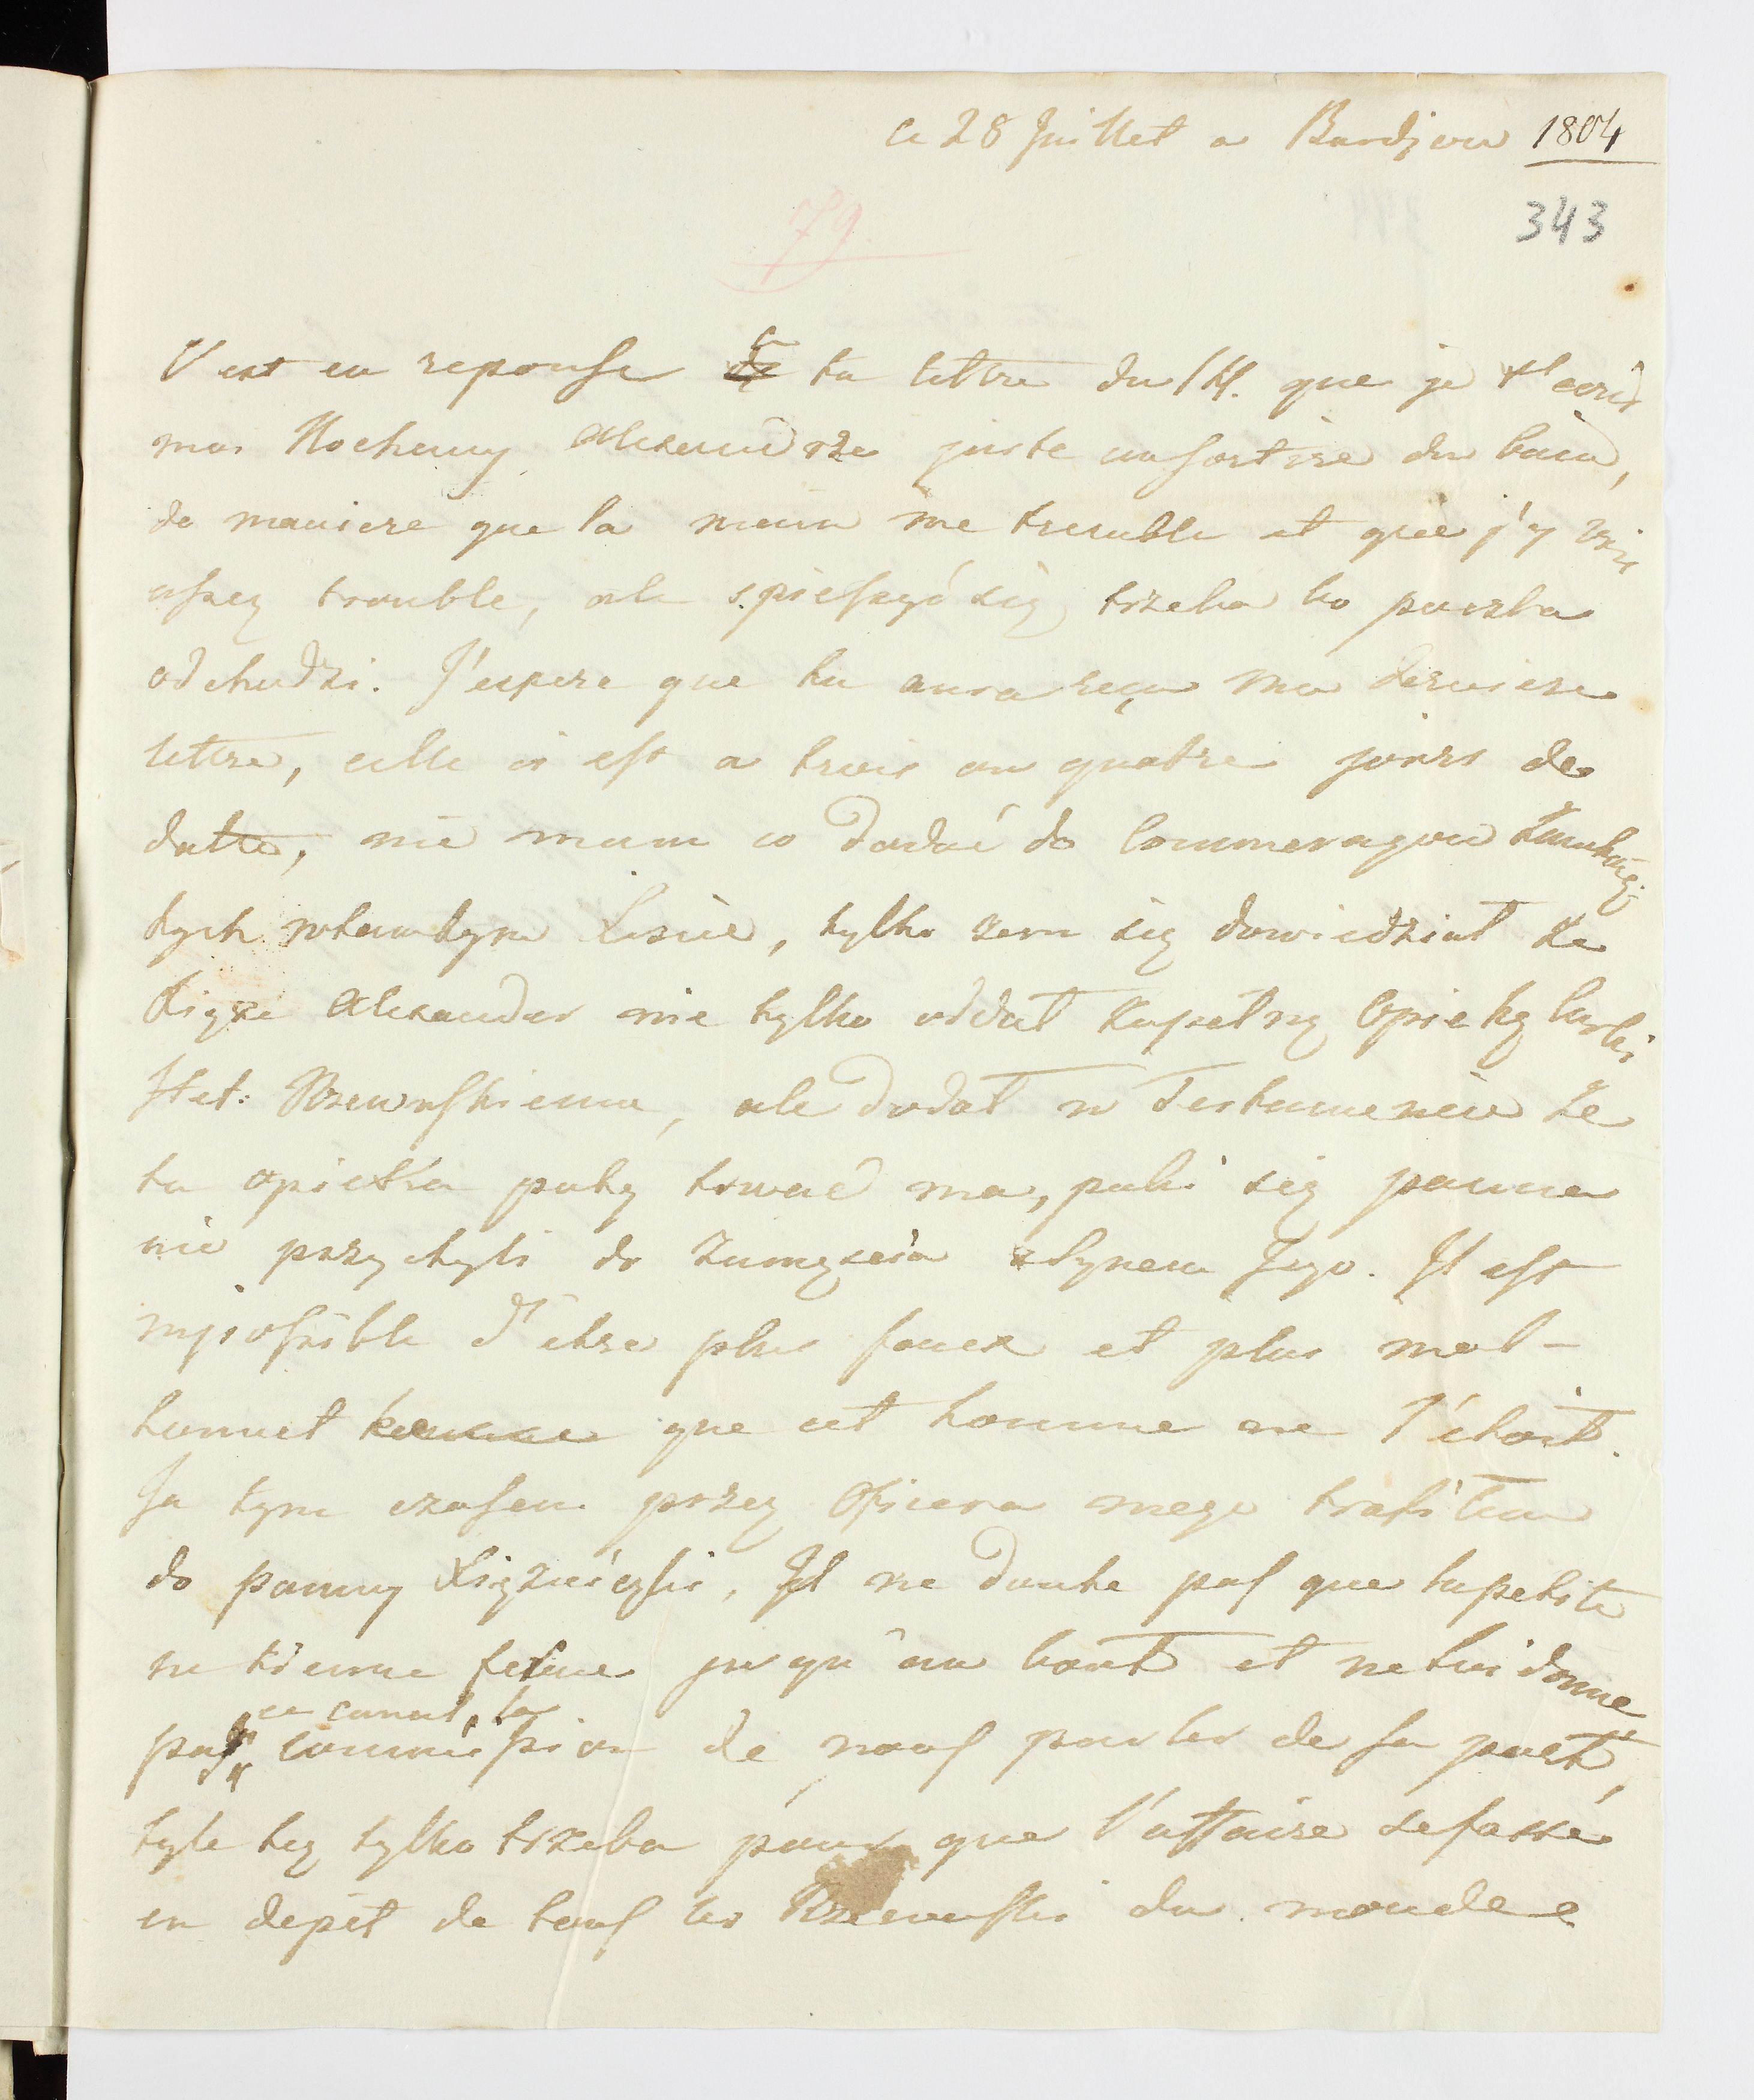 ce 28 Juillet a Bardjow 1804
343
79
C'est en reponse a ta lettre du 14. que je t'ecris
moi Kochany Alexandrze juste au sortire du bain,
de maniere que la main me tremble et que j'y vois
assez trouble, ale spieszyć się trzeba bo poczta
odchodzi. J'espere que tu aura reçu ma derniere
lettre, celle ci est a trois ou quatre jours de
datte, nie mam co dodać do Commeragow
tych w tamtym Liscie, tylko zem się dowiedział ze
Xiąze Alexander nie tylko oddał zupełną Opiekę Corki
Het: Rzewuskiemu, ale dodał w Testamencie ze
ta opieka poty trwać ma, poki się panna
nie przychyli do zamęscia z Synem Jego. Il est
impossible d'etre plus faux et plus mal-
honnet que cet homme ne l'étoit.
Ja tym czasem przez Oficera mego trafiłem
do panny Xięzniczki, Il ne doute pas que la petite
ne tienne ferme jusqu'au bout et ne lui donne
pas, ce canal, la commission de nous parler de sa part,
tyle tez tylko trzeba pour que l'affaire se fasse
en depit de tous les Rzewuski du monde